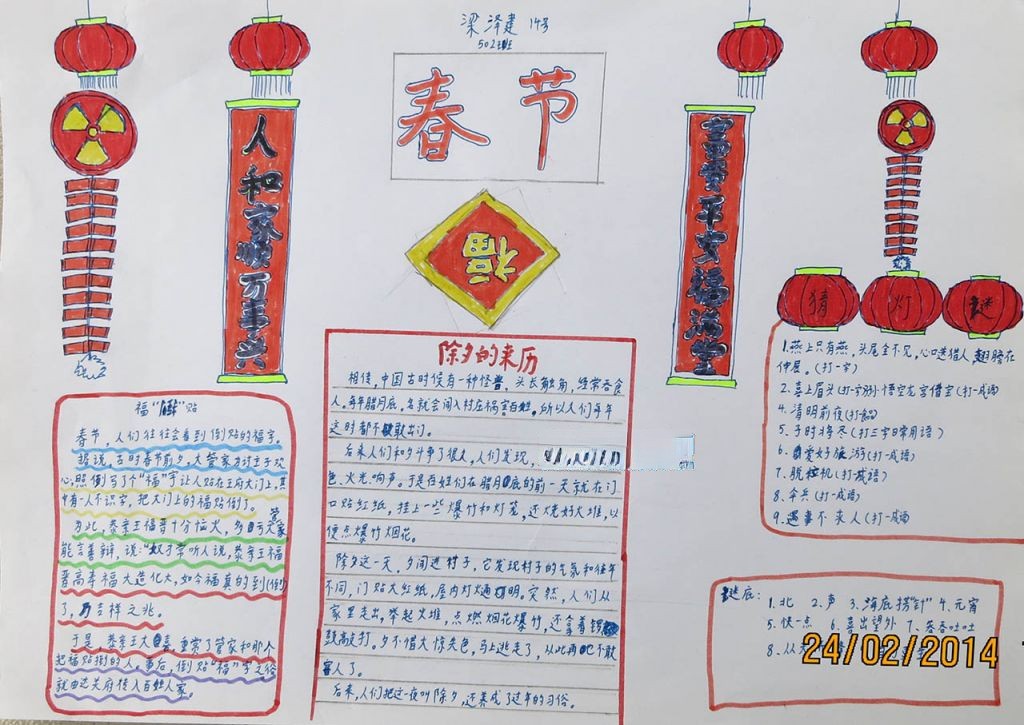 梁泽建 14号
502班
春 节
人和家顺万事兴
富贵平安福满堂
福
福“倒”贴
春节，人们往往会看到倒贴的福字。
据说，古时春节前夕，大管家为讨主子欢
心，照例写了个“福”字让人贴在王府大门上，其
中有一人不识字，把大门上的福贴倒了。
为此，恭亲王福晋十分恼火，多亏大管家
能言善辩，说：“奴才常听人说，恭亲王福
晋高寿福大造化大，如今福真的到(倒)
了，乃吉祥之兆。
于是，恭亲王大喜，重赏了管家和那个
把福贴倒的人。事后，倒贴“福”字之俗
就由达官府传入百姓人家。
除夕的来历
相传，中国古时候有一种怪兽，头长触角，经常吞食
人。每年腊月底，夕就会闯入村庄祸害百姓。所以人们每年
这时都不敢出门。
后来人们和夕斗争了很久，人们发现，
色、火光响声。于是百姓们在腊月底的前一天就在门
口贴红纸，挂上一些爆竹和灯笼，还烧好火堆，以
便点爆竹烟花。
除夕这一天，夕闯进村子，它发现村子的气氛和往年
不同，门贴大红纸，屋内灯烛通明。突然，人们从
家里走出，举起火堆，点燃烟花爆竹，还拿着锣
鼓高敲打。夕不借大惊失色，马上逃走了，从此再也不敢
害人了。
后来，人们把这一夜叫除夕，还养成了过年的习俗。
猜 灯 谜
1.燕上只有燕，头尾全不见，心口送猎人
仲展。(打一字)
2.喜上眉头(打一字)3.悟空龙宫借宝(打一成语
4.清明前夜(打
5.子时将尽(打三字日常用语)
6.爱好旅游(打一成语)
7.脱粒机(打一成语)
8.伞兵(打一成语)
9.遇事不求人(打一成语
谜底：
1.北 2.声 3.海底捞“针” 4.元宵
5.快一点 6.喜出望外 7.吞吞吐吐
8.从天
24/02/2014